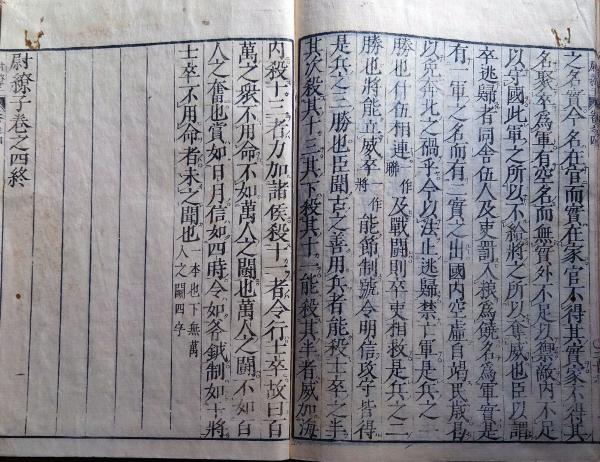 之名實今名在官而實在家官不得其實家不得其
名聚卒爲軍有空名而無實外不足以禦敵內不足
以守國此軍之所以不給將之所以奪威也臣以謂
卒逃歸者同舍伍人及吏罰入糧爲饒名爲軍實是
有一軍之名而有二實之出國內空虛自竭民歲曷
以免奔北之禍乎今以法止逃歸禁亡軍是兵之一
勝也什伍相連 聯作 及戰鬪則卒吏相救是兵之二
勝也將能立威卒 將作 能節制號令明信攻守皆得
是兵之三勝也臣聞古之善用兵者能殺士卒之半
其次殺其十三其下殺其十一能殺其半者威加海
內殺十三者力加諸侯殺十一者令行士卒故曰百
萬之衆不用命不如萬人之鬪也萬人之鬪不如百
人之奮也賞如日月信如四時令如斧鉞制如干將
士卒不用命者未之聞也 本也下無萬人之鬪四字
尉繚子卷之四終